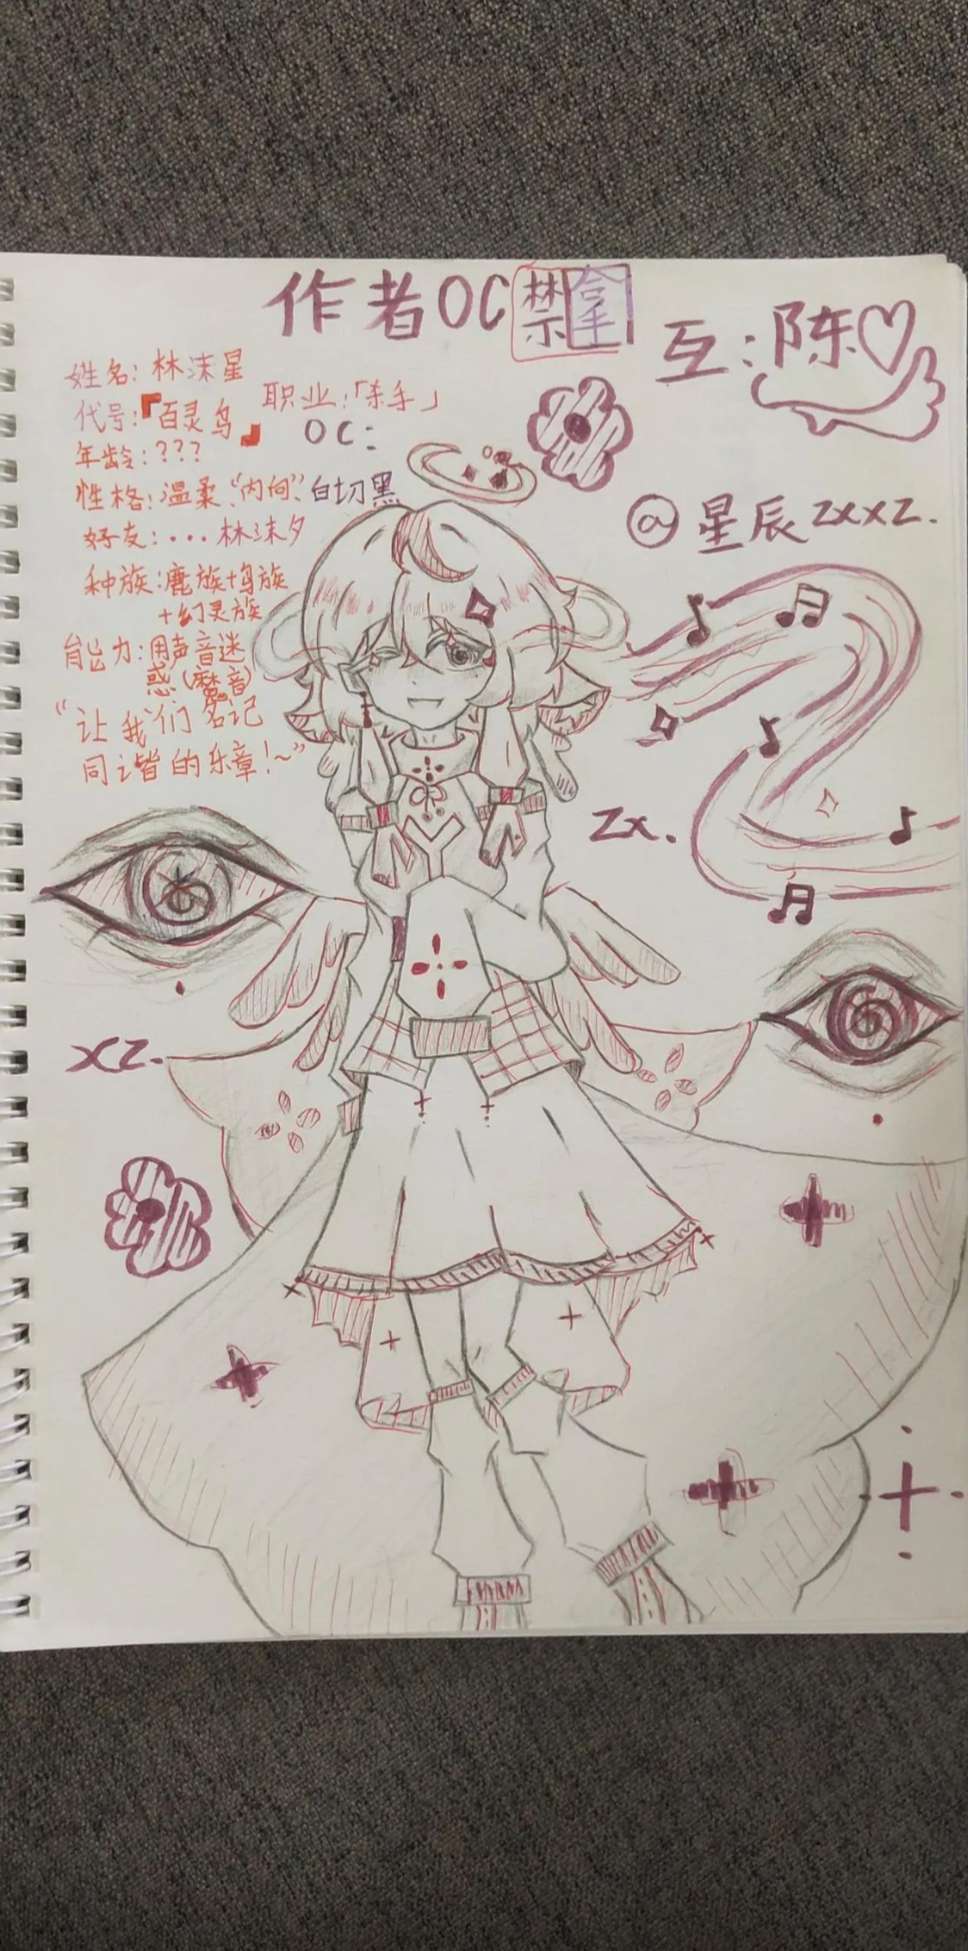 作者OC禁拿
互:陈♡
姓名:林沫星
代号:『百灵鸟』
职业:「杀手」
OC:
年龄:???
性格:温柔、“内向”、白切黑
好友:...林沫夕
种族:鹿族+鸟族
+幻灵族
能力:用声音迷
惑(魔音)
“让我们铭记
同谐的乐章!~”
@星辰zxxz.
zx.
xz.